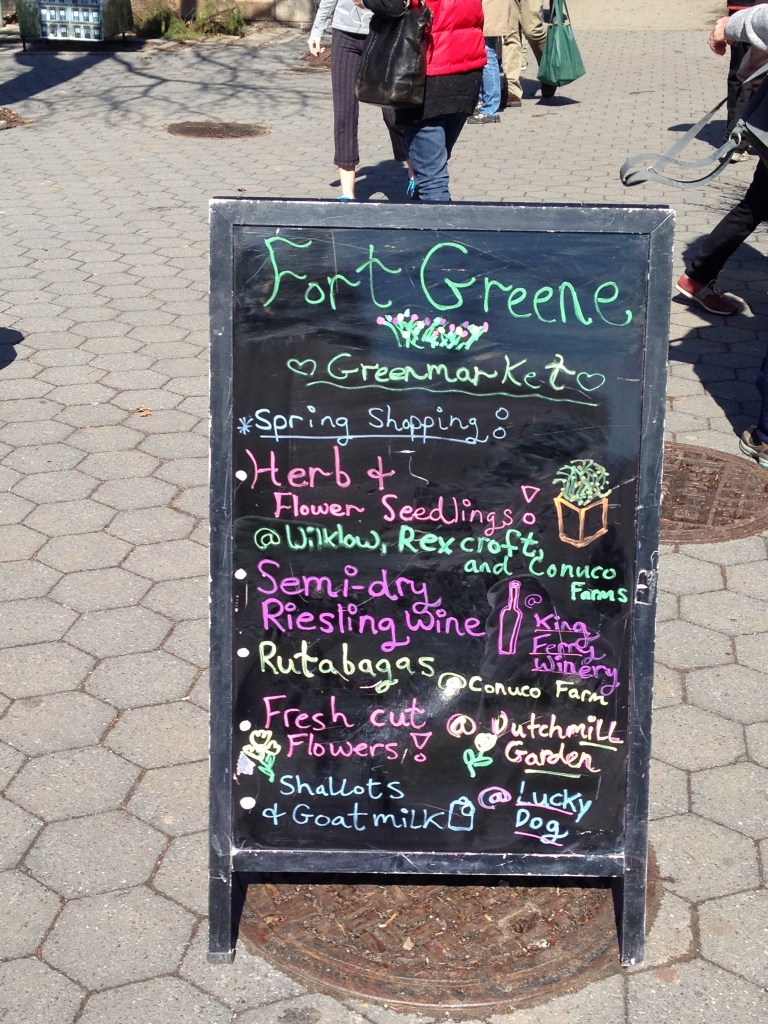 Fort Greene
Greenmarket
*Spring Shopping:
Herb &
Flower Seedlings!
@ Wilklow, Rexcroft,
and Conuco
Farms
Semi-dry
Riesling Wine
@
King
Ferry
Winery
Rutabagas
@ Conuco Farm
Fresh cut
Flowers!
@ Dutchmill
Garden
Shallots
& Goatmilk
@ Lucky
Dog